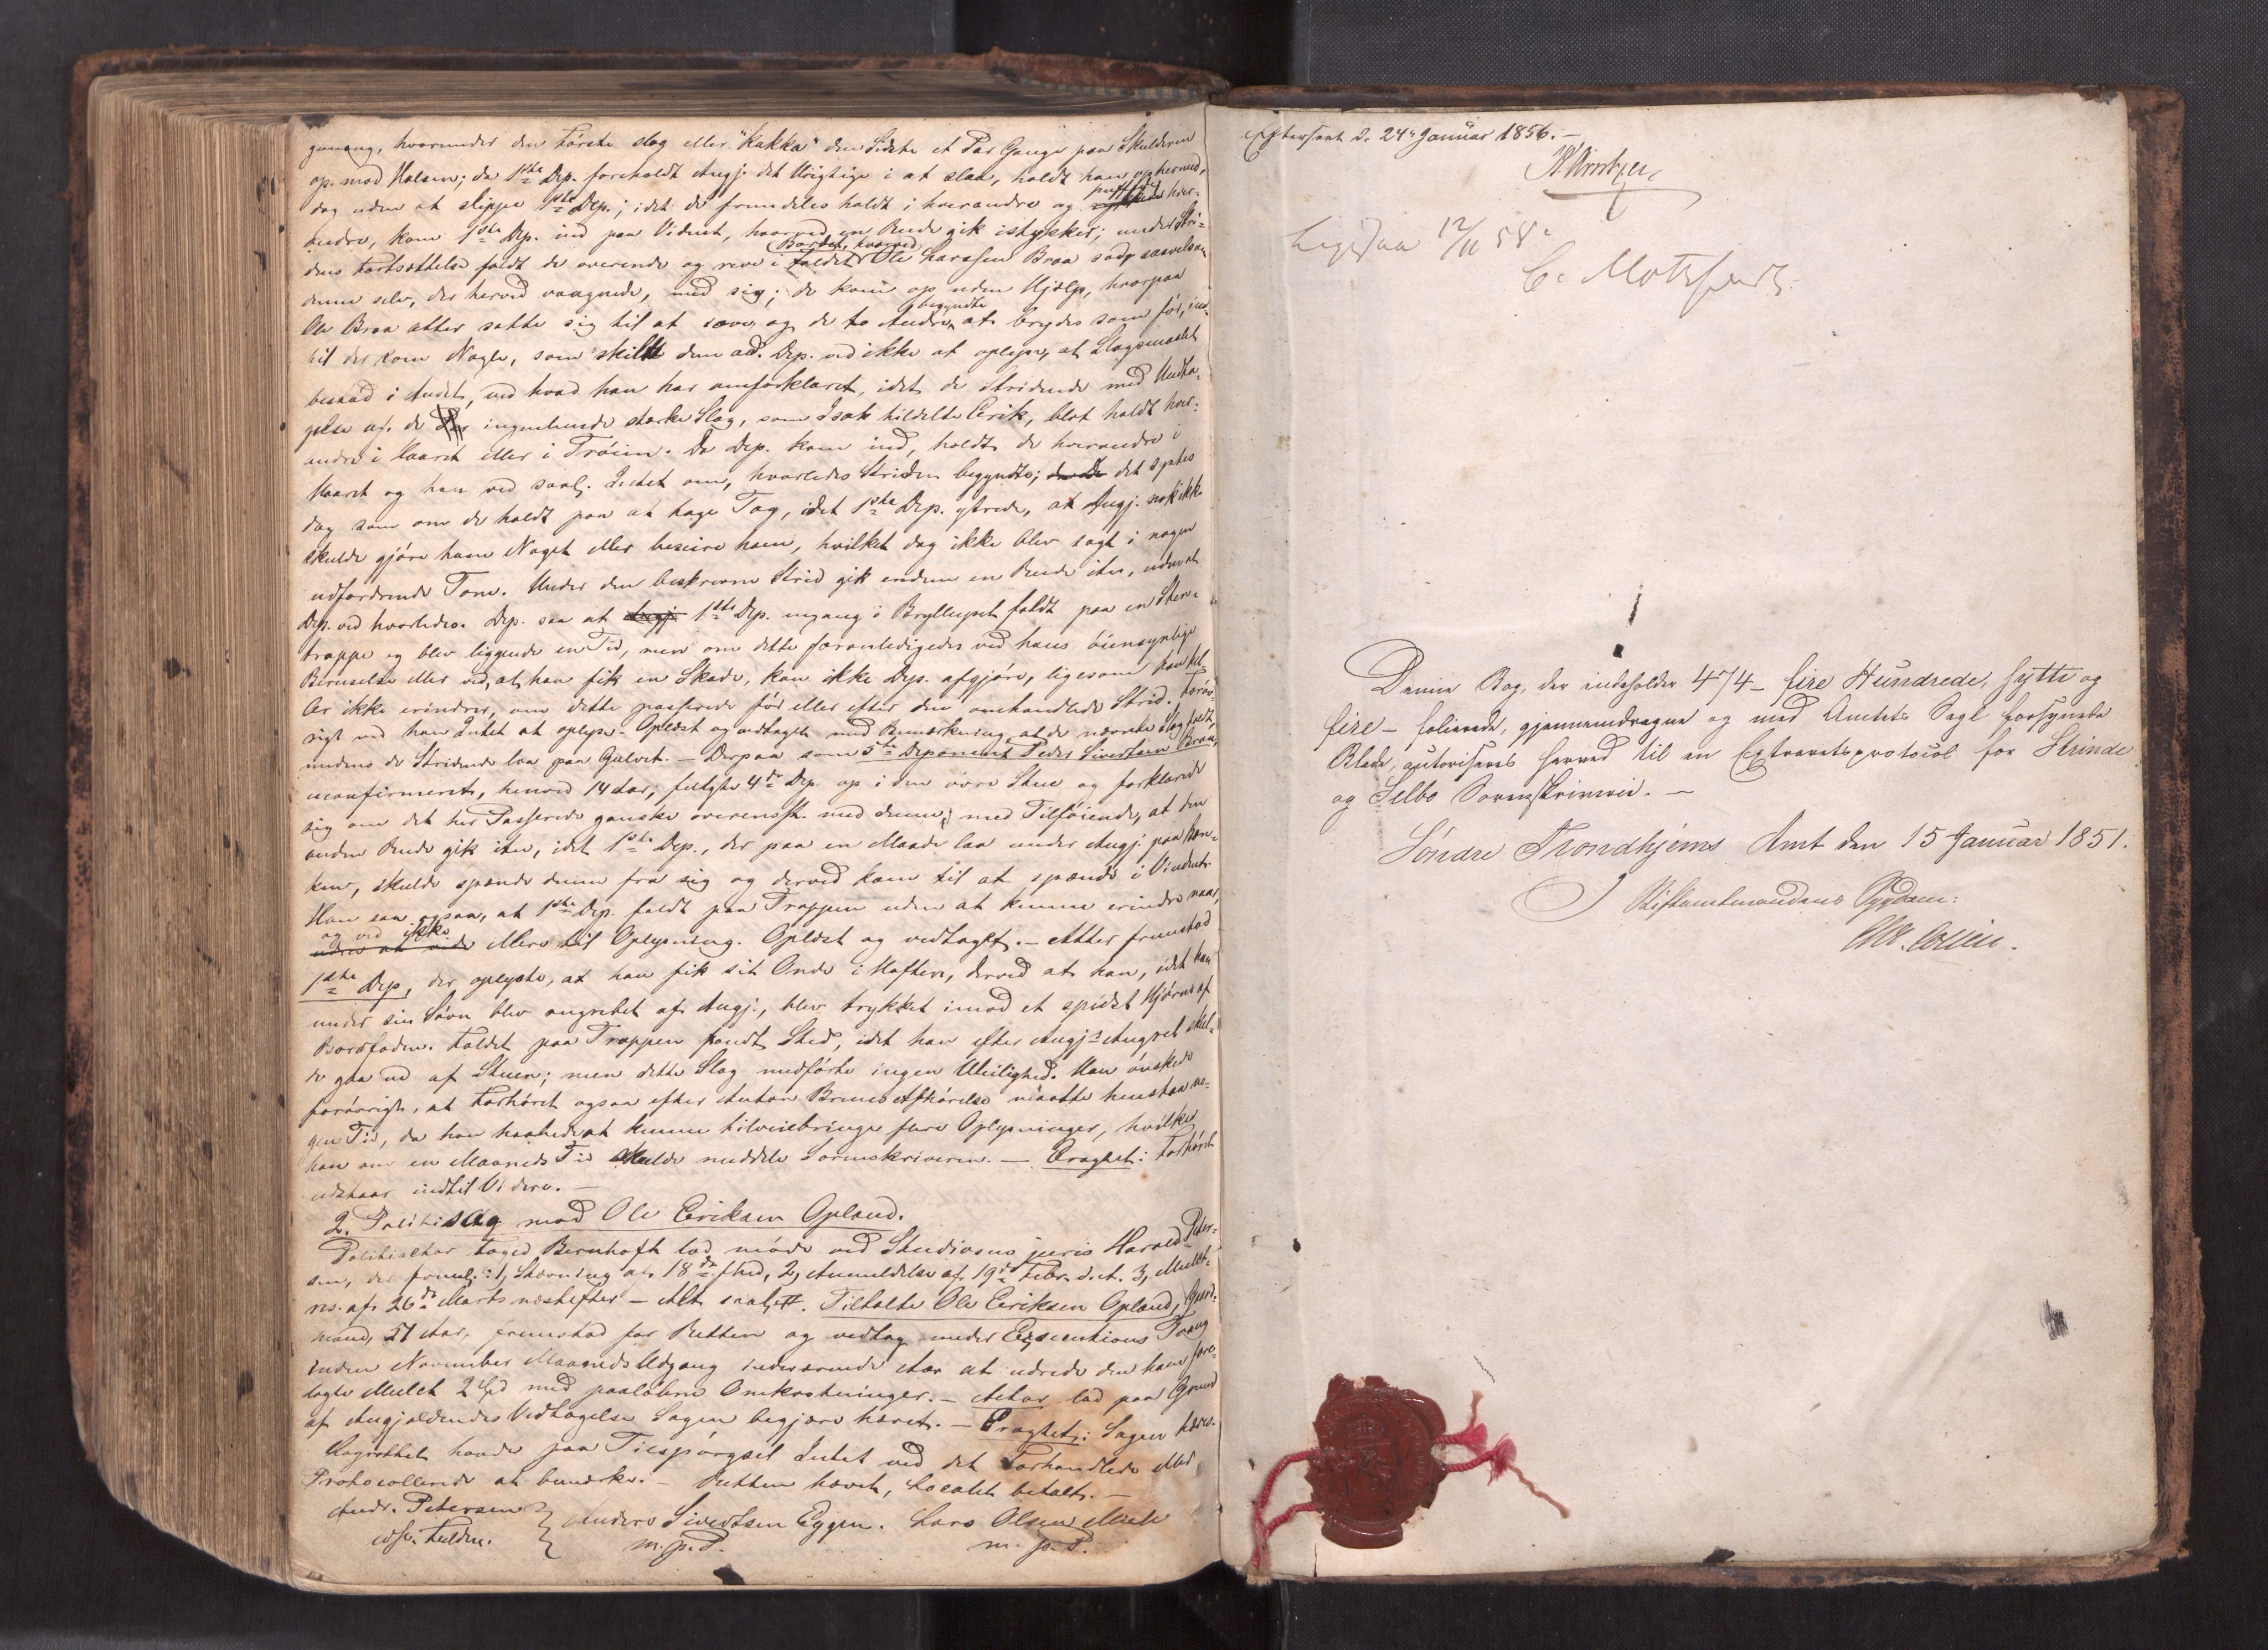 gunang, hvorunder den første slog eller "kakka" den Sidste et Par Gange paa Skulderen
op mod Halsen; da 1ste Dep. foreholdt Angj. det Urigtige i at slaa, holdt han op hermed,
dog uden at slippe 1ste Dep.; idet de fremdeles holdt i hverandre og puffede hver-
andre, kom 1ste Dep. ind paa Vinduet, hvorved en Rude gik istykker; under Stri-
dens Fortsættelse faldt de overende og rev i Faldet Bordet, hvorved Ole Larssen Braa sad, saavelsom
denne selv, der herved vaagnede, med sig; de kom op uden Hjælp, hvorpaa
Ole Braa atter satte sig til at sove, og de to Andre begyndte at brydes som før, ind-
til der kom Nogle, som skilte dem ad. Dep. ved ikke at oplyse, at Slagsmaalet
bestod i Andet, end hvad han har omforklaret, idet de Stridende med Undta-
gelse af de ingenlunde stærke Slag, som Isak tildelte Erik, blot holdt hver-
andre i Haaret eller i Trøien. Da Dep. kom ind, holdt de hverandre i
Haaret og han ved saal. Intet om, hvorledes Striden begyndte; det syntes
dog som om de holdt paa at tage Tag, idet 1ste Dep. ytrede, at Angj. nok ikke
skulde gjøre ham Noget eller beseire ham, hvilket dog ikke blev sagt i nogen
udfordrende Tone. Under den beskrevne Strid gik endnu en Rude itu, uden at
Dep. ved hvorledes. Dep. saa at 1ste Dep. engang i Brylluppet faldt paa en Sten-
trappe og blev liggende en Tid, men om dette foranledigedes ved hans øiensynlige
Beruselse eller ved, at han fik en Skade, kan ikke Dep. afgjøre, ligesom han hel-
ler ikke erindrer, om dette passerede før eller efter den omhandlede Strid. Forøv-
rigt ved han Intet at oplyse. Oplæst og vedtaget med Bemærkning at de nævnte Slag faldt,
medens de Stridende laa paa Gulvet. — Derpaa som 5te Deponent Peder Sivertsen Braa,
uconfirmeret, henved 14 Aar, fulgte 4de Dep. op i den øvre Stue og forklarede
sig om det her Passerede ganske overensst. med denne, med Tilføiende, at den
anden Rude gik itu, idet 1ste Dep., der paa en Maade laa under Angj. paa Bæn-
ken, skulde spænde denne fra sig og derved kom til at spænde i Vinduet.
Han saa ogsaa, at 1ste Dep. faldt paa Trappen uden at kunne erindre naar,
og ved ikke Mere til Oplysning. Oplæst og vedtaget. — Atter fremstod
1ste Dep., der oplyste, at han fik sit Onde i Hoften, derved at han, idet han
under sin Søvn blev angrebet af Angj., blev trykket imod et spidst Hjørne af
Bordfoden. Faldet paa Trappen fandt Sted, idet han efter Angj.s Angreb skul-
de gaa ud af Stuen; men dette Slag medførte ingen Uleilighed. Han ønskede
forøvrigt, at Forhøret ogsaa efter Anton Bruns Afhørelse maatte henstaa no-
gen Tid, da han haabede at kunne tilveiebringe flere Oplysninger, hvilke
han om en Maaneds Tid skulde meddele Sorenskriveren. — Eragtet: Forhøret
udstaar indtil Videre. —
2. Politisag mod Ole Eriksen Opland.
Politiactor Foged Bernhoft lod møde ved Studiosus juris Harald Peter-
sen, der freml.: 1, Stævning af 18de f. hed, 2, Anmeldelse af 19de Febr. d. A. 3, Mulct-
res. af 26de Marts næstefter — Alt saal. Tiltalte Ole Eriksen Opland, Gaard-
mand, 51 Aar, fremstod for Retten og vedtog under Executions Tvang
inden November Maaneds Udgang indeværende Aar at udrede den ham fore-
lagte Mulct 2 Spd med paaløbne Omkostninger. — Actor lod paa Grund
af Angjældendes Vedtagelse Sagen begjære hævet. — Eragtet: Sagen hæves.
Lagrettet havde paa Tilspørgsel Intet ved det Forhandlede eller
Protocollerede at bemærke. — Retten hævet, Localet betalt. —
Andr. Petersen Anders Sivertsen Eggen. Lars Olsen
m. p. P. m. p. P.
Efterseet d. 24de Januar 1856. —
Ligesaa 12/11 58.
C. Motzfeldt.
Denne Bog, der indeholder 474 — fire Hundrede, sytti og
fire — folierede, gjennemdragne og med Amtets Segl forsynede
Blade, autoriseres herved til en Extraretsprotocol for Strinde
og Selbo Sorenskriveri. —
Søndre Trondhjems Amt den 15 Januar 1851.
I Stiftamtmandens Sygdom: